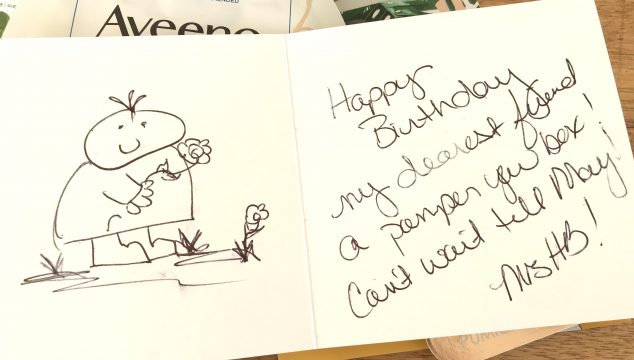 Aveeno
Happy
Birthday
my dearest friend
a pamper you box!
Can't wait till May!